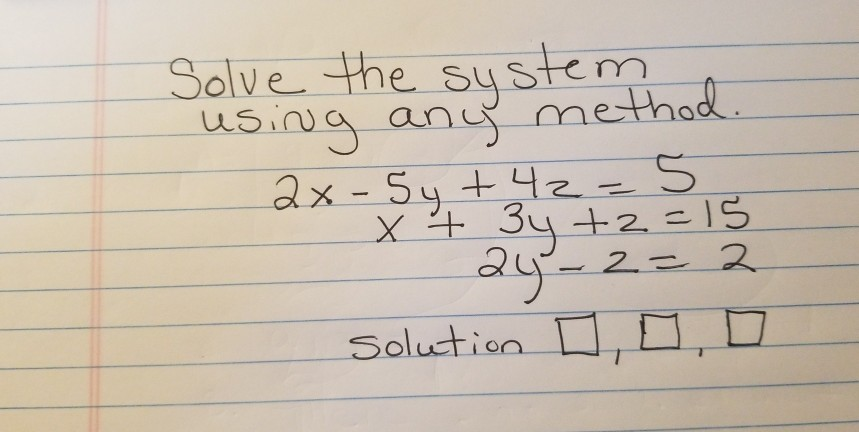 Solve the system
using any method.
2x - 5y + 4z = 5
x + 3y + z = 15
2y - z = 2
Solution □, □, □